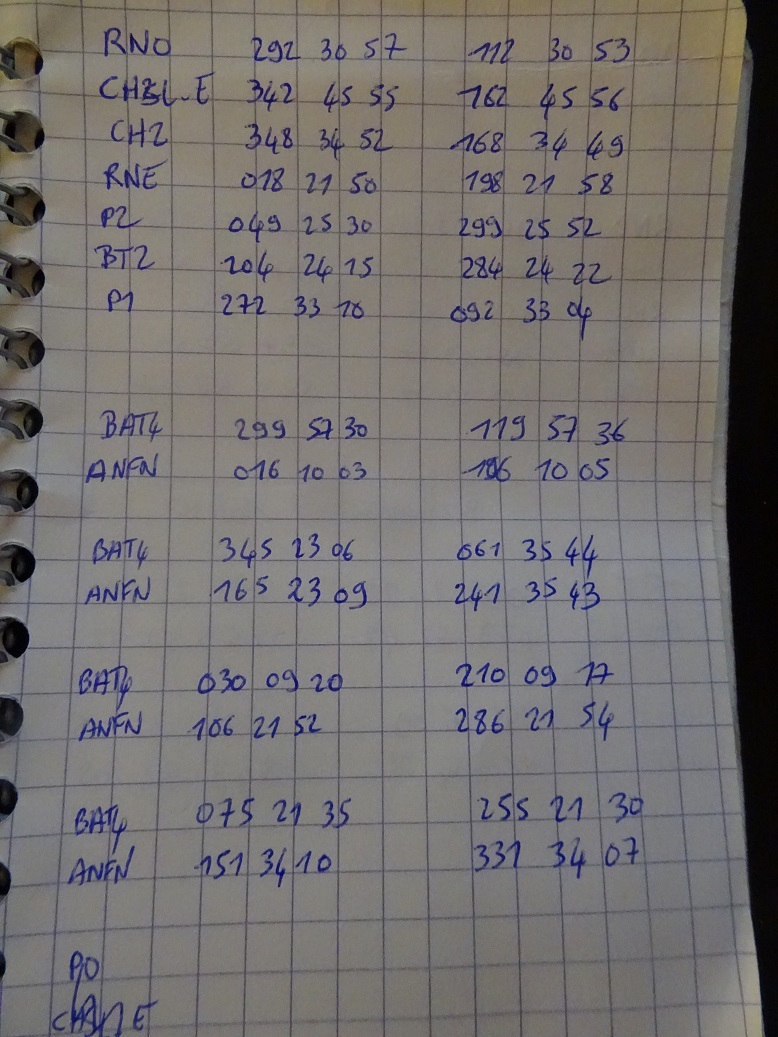 RNO 292 30 57 112 30 53
342 45 55 162 45 56
CH2 348 34 52 168 34 49
RNE 018 21 50 198 21 58
P2 049 25 30 299 25 52
BT2 104 24 15 284 24 22
P1 272 33 10 092 33 04
BAT4 299 57 30 119 57 36
ANFN 016 10 03 196 10 05
BAT4 345 23 06 061 35 44
ANFN 165 23 09 241 35 43
BAT4 030 09 20 210 09 17
ANFN 106 21 52 286 21 54
BAT4 075 21 35 255 21 30
ANFN 151 34 10 331 34 07